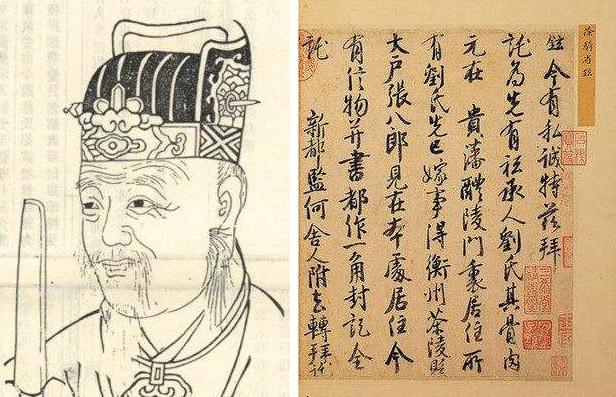 徐騎省鉉
鉉今有私誠特茲拜
託為先有祗承人劉氏其骨肉
元在 貴藩醴陵門裏居住所
有劉氏先已嫁事得衡州茶陵縣
大戶張八郎見在本處居住今
有信物并書都作一角封記全
託 新都監何舍人附去轉拜